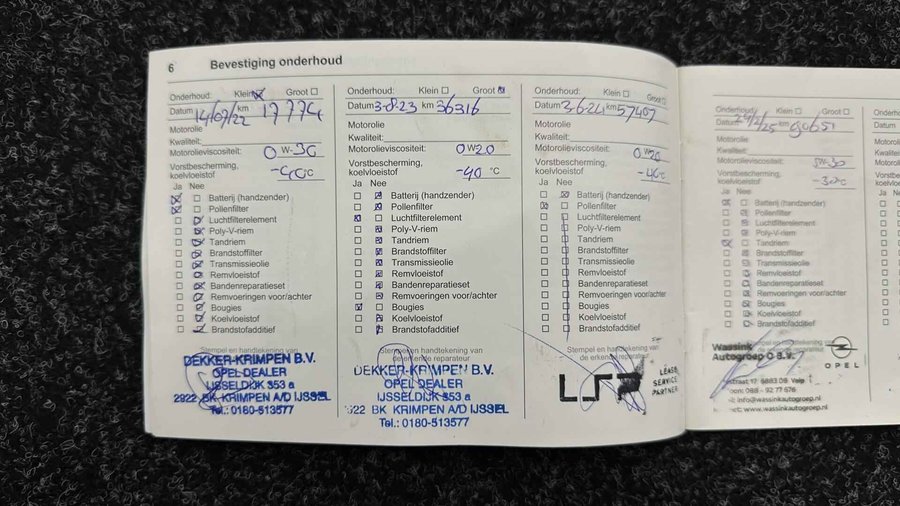 6 Bevestiging onderhoud
Onderhoud: Klein Groot
Datum 14/07/22 km 17774
Motorolie
Kwaliteit:
Motorolieviscositeit: 0 W-30
Vorstbescherming,
koelvloeistof -40°C
Ja Nee
Batterij (handzender)
Pollenfilter
Luchtfilterelement
Poly-V-riem
Tandriem
Brandstoffilter
Transmissieolie
Remvloeistof
Bandenreparatieset
Remvoeringen voor/achter
Bougies
Koelvloeistof
Brandstofadditief
Stempel en handtekening van
DEKKER-KRIMPEN B.V.
OPEL DEALER
IJSSELDIJK 353 a
2922 BK KRIMPEN A/D IJSSEL
Tel.: 0180-513577
Onderhoud: Klein Groot
Datum 3-8-23 km 36316
Motorolie
Kwaliteit:
Motorolieviscositeit: 0 W 20
Vorstbescherming,
koelvloeistof -40 °C
Ja Nee
Batterij (handzender)
Pollenfilter
Luchtfilterelement
Poly-V-riem
Tandriem
Brandstoffilter
Transmissieolie
Remvloeistof
Bandenreparatieset
Remvoeringen voor/achter
Bougies
Koelvloeistof
Brandstofadditief
Stempel en handtekening van
de erkende reparateur
DEKKER-KRIMPEN B.V.
OPEL DEALER
IJSSELDIJK 353 a
2922 BK KRIMPEN A/D IJSSEL
Tel.: 0180-513577
Onderhoud: Klein Groot
Datum 3-6-24 km 57407
Motorolie
Kwaliteit:
Motorolieviscositeit: 0 W 20
Vorstbescherming,
koelvloeistof -40°C
Ja Nee
Batterij (handzender)
Pollenfilter
Luchtfilterelement
Poly-V-riem
Tandriem
Brandstoffilter
Transmissieolie
Remvloeistof
Bandenreparatieset
Remvoeringen voor/achter
Bougies
Koelvloeistof
Brandstofadditief
Stempel en handtekening van
de erkende reparateur
LEASE
SERVICE
PARTNER
Onderhoud: Klein Groot
Datum km 90651
Motorolie
Kwaliteit:
Motorolieviscositeit: 5W-30
Vorstbescherming,
koelvloeistof -30°C
Ja Nee
Batterij (handzender)
Pollenfilter
Luchtfilterelement
Poly-V-riem
Tandriem
Brandstoffilter
Transmissieolie
Remvloeistof
Bandenreparatieset
Remvoeringen voor/achter
Bougies
Koelvloeistof
Brandstofadditief
Stempel en handtekening van
Wassink
Autogroep O B.V.
OPEL
straat 17, 6883 DB Velp
088 - 92 77 676
info@wassinkautogroep.nl
www.wassinkautogroep.nl